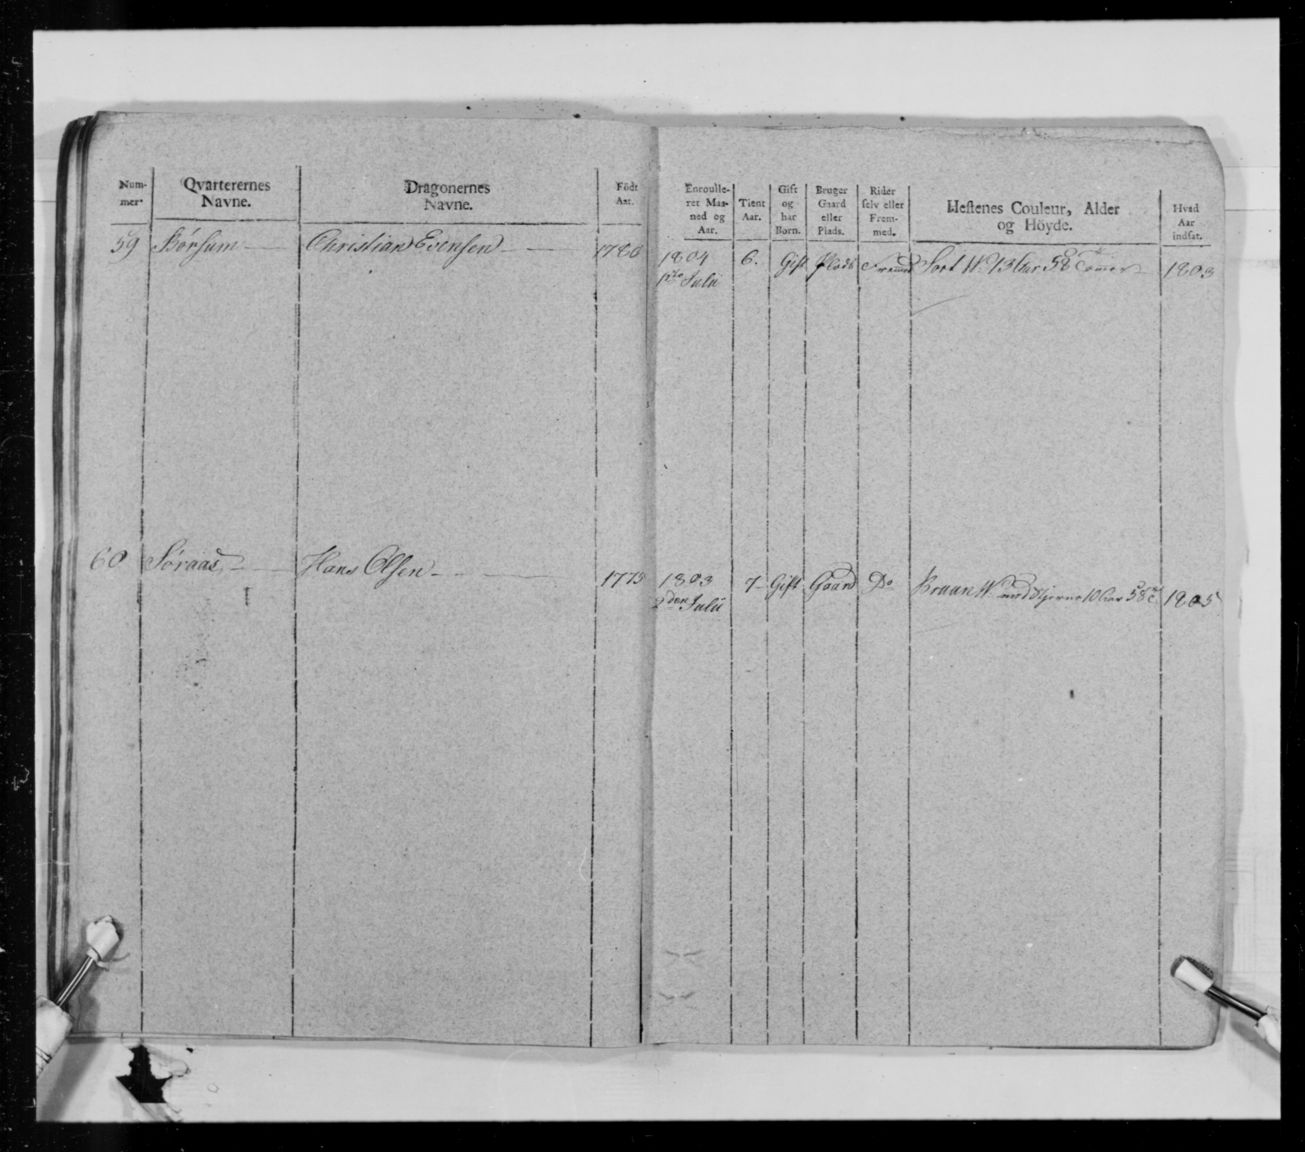 Num-
mer.
Qvarterernes
Navne.
Dragonernes
Navne.
Födt
Aar.
Enroulle-
ret Maa-
ned og
Aar.
Tient
Aar.
Gift
og
har
Born.
Bruger
Gaard
eller
Plads.
Rider
selv eller
Frem-
med.
Hestenes Couleur, Alder
og Höyde.
Hvad
Aar
indsat.
59 Börsum Christian Evensen 1780 1804 6. Gift Plads Fremmed Sort W. 13 Aar 58 Tommer 1803
Julii
60 Söraas Hans Olsen 1775 1803 7 Gift Gaard Do Bruun W. med Stjerne 10 Aar 58 1805
2den Julii